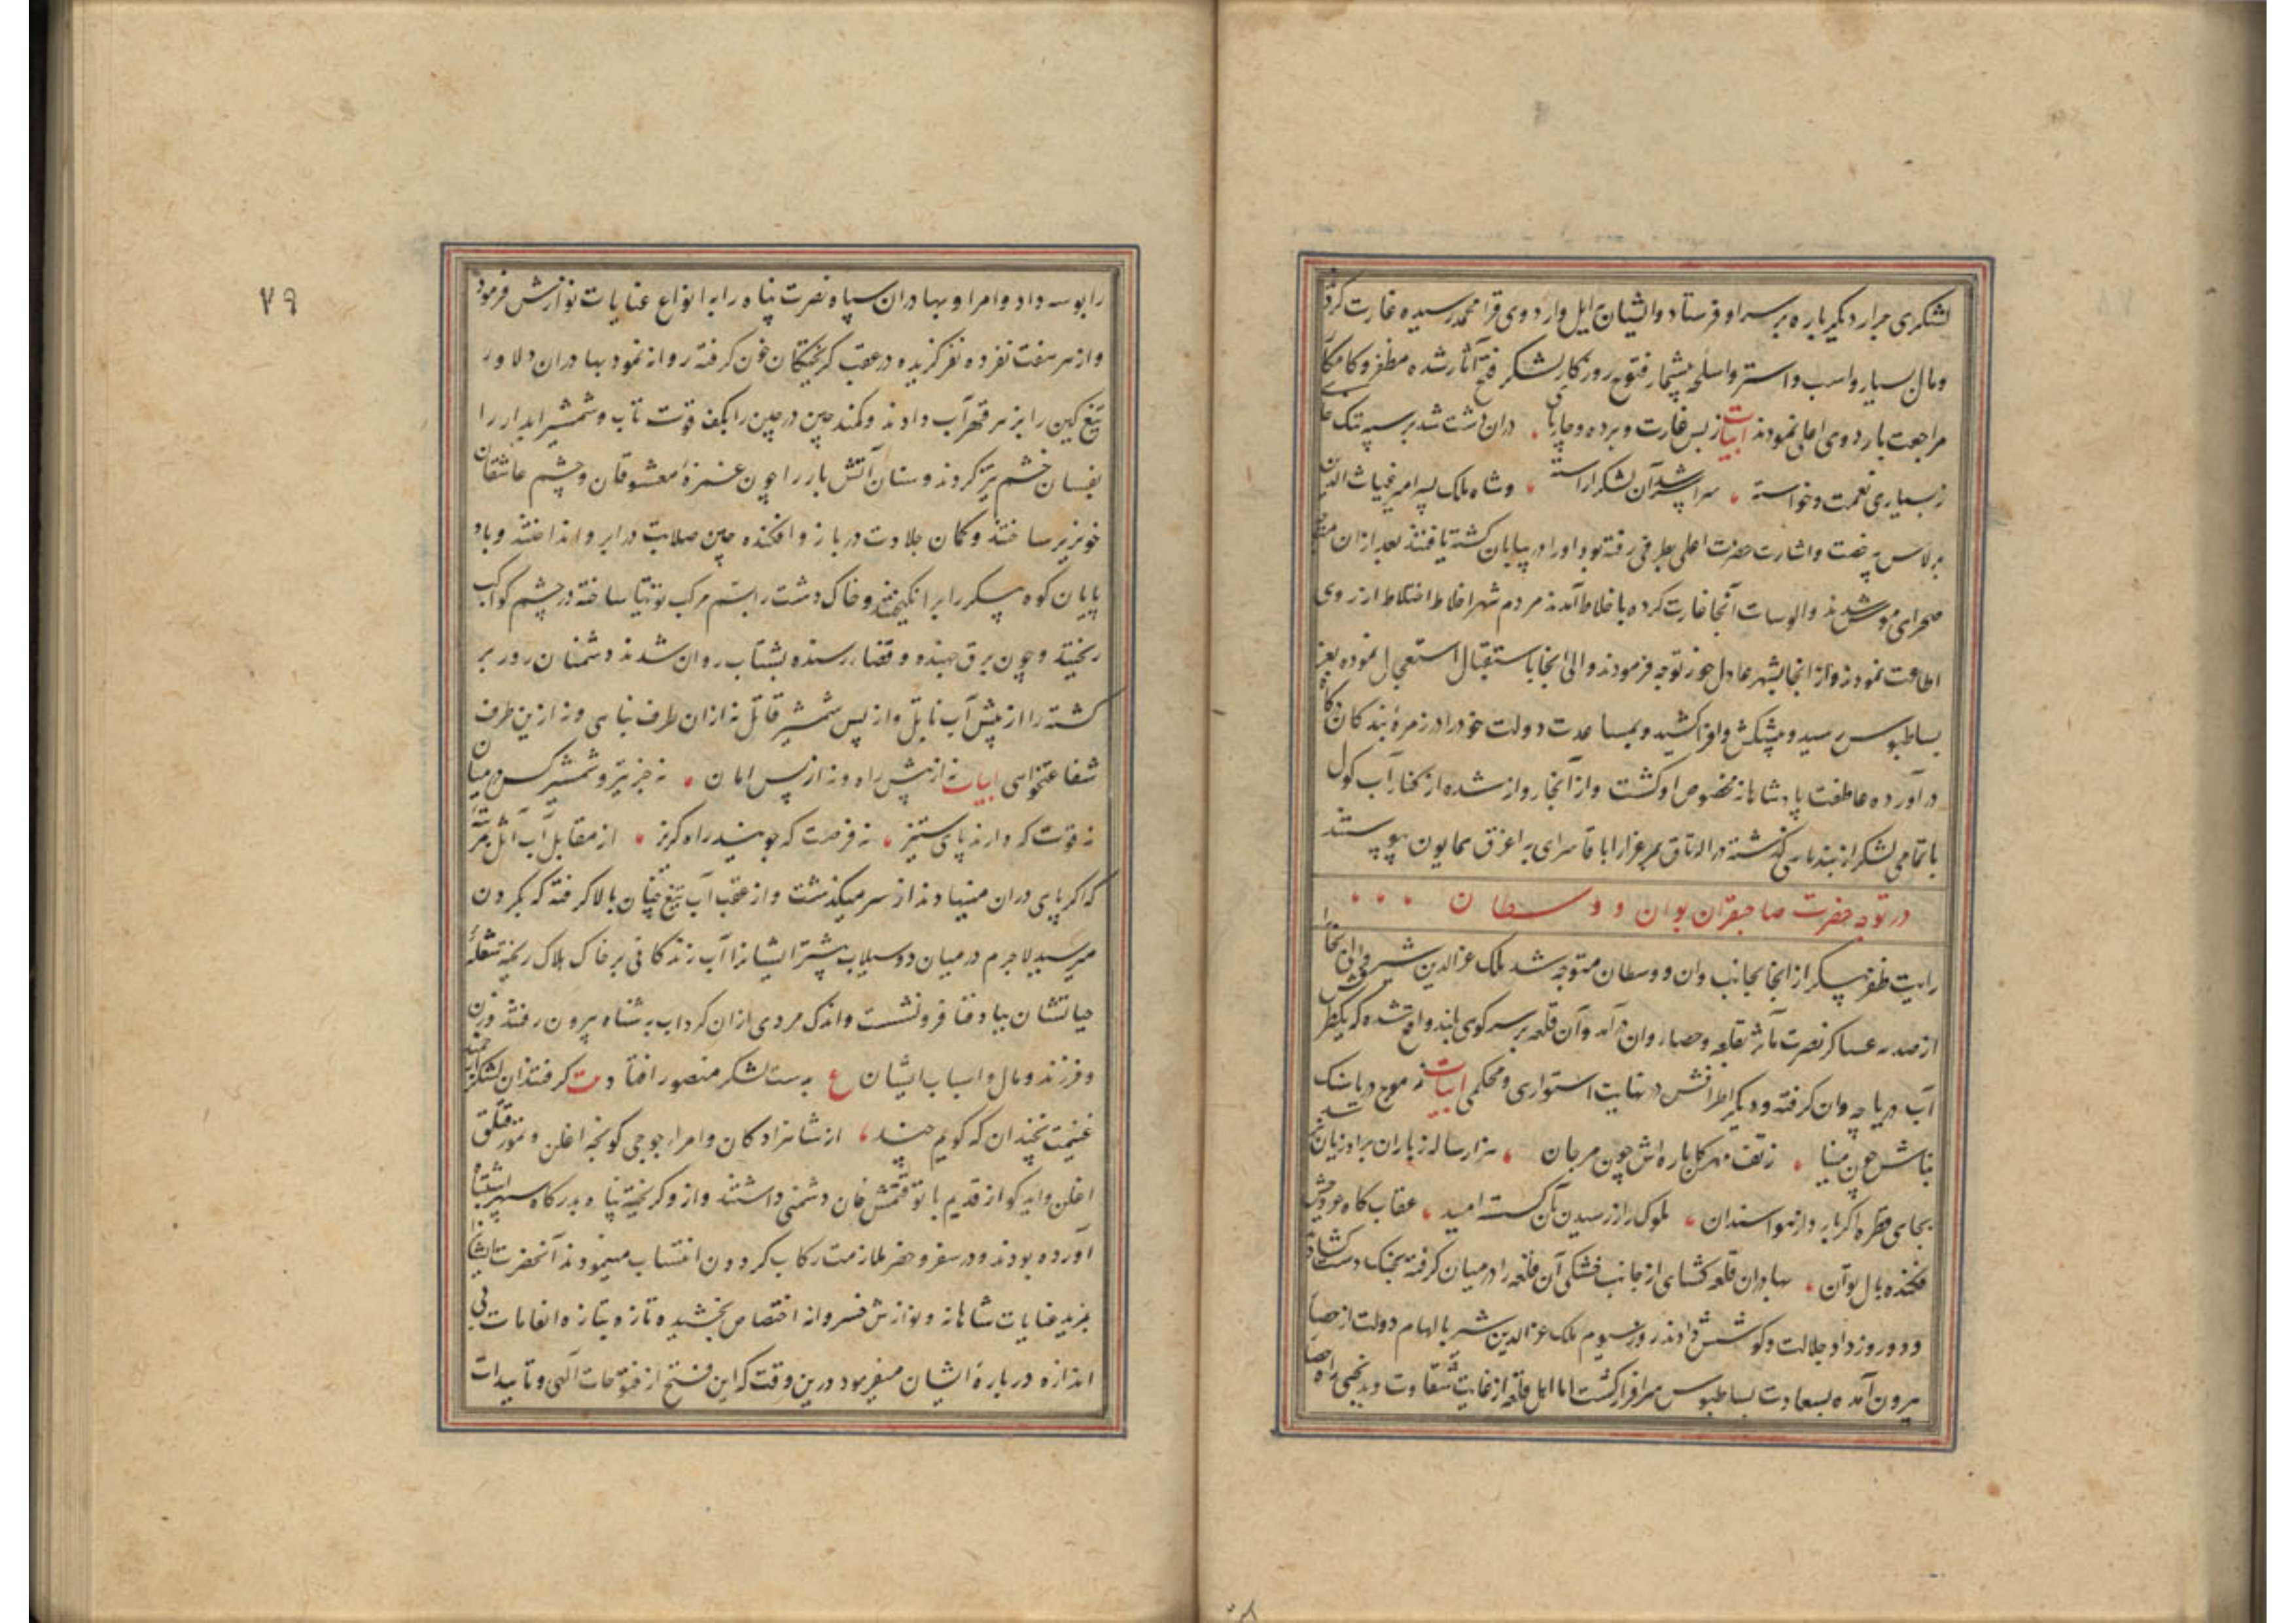 لشکری جرار دیگر باره بر سر او فرستاد و ایشان بایل و اردوی قرا محمد رسیده غارت کردند
ومال بسیار و اسب و استر و اسلحه بیشمار فتوح روزکار لشکر فتح آثار شده مظفر و کامکار
مراجعت باردوی اعلی نمودند ابیات ز بس غارت و برده و چارپای دران دشت شد بر سپه تنک جای
ز بسیاری نعمت و خواسته سراسر شد آن لشکر آراسته و شاه ملک پسر امیر غیاث الدین
برلاس بی رخصت و اشارت حضرت اعلی بطرفی رفته بود او را در بیابان کشته یافتند بعد از ان
صحرای موش شدند و الوسات آنجا غارت کرده باخلاط آمدند مردم شهر اخلاط اختلاط از روی
اطاعت نمودند و از انجا بشهر عادل جوز توجه فرمودند و والی انجا باستقبال استعجال نموده بعز
بساطبوس رسید و پیشکش وافر کشید و بمساعدت دولت خود را در زمرهٔ بندکان درکاه
در آورده عاطفت پادشاهانه مخصوص او کشت و از آنجا روانه شده از کنار آب کول
با تمامی لشکر از بند ماهی کذشته در الاتاق بمرغزار اباقا سرای به اغرق همایون پیوستند
در توجه حضرت صاحبقران بوان و وسطان
رایت ظفر پیکر از انجا بجانب وان و وسطان متوجه شد ملک عزالدین شیر والی آنجا
از صدمه عساکر نصرت مآثر بقلعه و حصار وان در آمد و آن قلعه بر سر کوهی بلند واقع شده که یکطرفش
آب دریاچه وان کرفته و دیکر اطرافش در نهایت استواری و محکمی ابیات ز موج دریا سنک
بناش چون مینا ز تف مهر کل باره اش چون مرجان هزار ساله ز باران بر او زیان نرسد
بجای قطره اکر بارد از هوا سندان ملوک را ز رسیدن بآن کسسته امید عقاب کاه عروجش
فکنده بال توان بهادران قلعه کشای از جانب خشکی آن قلعه را در میان کرفته بجنک دست کشادند
و دو روز داد جلالت و کوشش دادند روز سیوم ملک عزالدین شیر بالهام دولت از حصار
بیرون آمده بسعادت بساطبوس سرافراز کشت اما اهل قلعه از غایت شقاوت و بدبختی راه
۷۹
را بوسه داد و امرا و بهادران سپاه نصرت پناه را به انواع عنایات نوازش فرمود
و از هر هفت نفر ده نفر کزیده در عقب کریختکان خون کرفته روانه نمود بهادران دلاور
تیغ کین را بزهر قهر آب دادند و کمند چین در چین را بکف قوت تاب و شمشیر ابدار را
بفسان خشم تیز کردند و سنان آتش بار را چون غمزهٔ معشوقان و چشم عاشقان
خونریز ساختند و کمان جلادت در بازو افکنده چین صلابت در ابرو انداختند و باد
پایان کوه پیکر را برانکیختند و خاک دشت را بسم مرکب توتیا ساخته در چشم کواکب
ریختند و چون برق جهنده و قضاء رسنده بشتاب روان شدند دشمنان روز بر
کشته را از پیش آب نایل و از پس شمشیر قاتل نه از ان طرف پناهی و نه از ین طرف
شفاعتخواهی ابیات نه از پیش راه و نه از پس امان نه جز تیر و شمشیر کس در میان
نه قوت که دارند پای ستیز نه فرصت که جویند راه کریز از مقابل آب اتل
که اکر پای دران مینهادند از سر میکذشت و از عقب آب تیغ چنان بالا کرفته که بکردن
میرسید لاجرم در میان دو سیلاب بیشتر ایشانرا آب زندکانی بر خاک هلاک ریخته شعلهٔ
حیاتشان بباد فنا فرو نشست و اندک مردی از ان کرداب به شناه بیرون رفتند و زن
و فرزند و مال و اسباب ایشان ع بدست لشکر منصور افتاد بیت کرفتند ان لشکر ارجمند
غنیمت نچندان که کویم چند از شاهزادکان و امراء جوجی کونجه اغلن و تمور قتلق
اغلن و ایدکو از قدیم با توقتمش خان دشمنی داشتند و از و کریخته پناه بدرکاه سپهر اشتباه
آورده بودند و در سفر و حضر ملازمت رکاب کردون انتساب مینمودند آنحضرت ایشانرا
بمزید عنایات شاهانه و نوازش خسروانه اختصاص بخشیده تازه بتازه انعامات بی
اندازه در بارهٔ ایشان میفرمود درین وقت که این فتح از فتوحات الهی و تاییدات